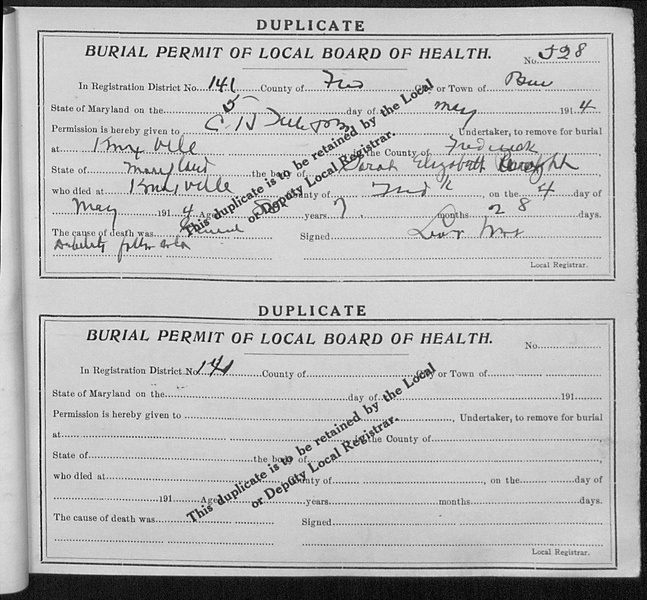 DUPLICATE
BURIAL PERMIT OF LOCAL BOARD OF HEALTH.
No. 528
In Registration District No. 141 County of Fred City or Town of
State of Maryland on the 5 day of May 1914
Permission is hereby given to C H , Undertaker, to remove for burial
at in the County of Frederick
State of Maryland the body of Sarah Elizabeth
who died at County of Fred k , on the 4 day of
May 1914 Age years 7 months 28 days.
The cause of death was General
Debility Signed
Local Registrar.
This duplicate is to be retained by the Local
or Deputy Local Registrar.
DUPLICATE
BURIAL PERMIT OF LOCAL BOARD OF HEALTH.
No.
In Registration District No. 141 County of City or Town of
State of Maryland on the day of 191
Permission is hereby given to , Undertaker, to remove for burial
at in the County of ,
State of the body of ,
who died at County of , on the day of
191 Age years months days.
The cause of death was Signed
Local Registrar.
This duplicate is to be retained by the Local
or Deputy Local Registrar.